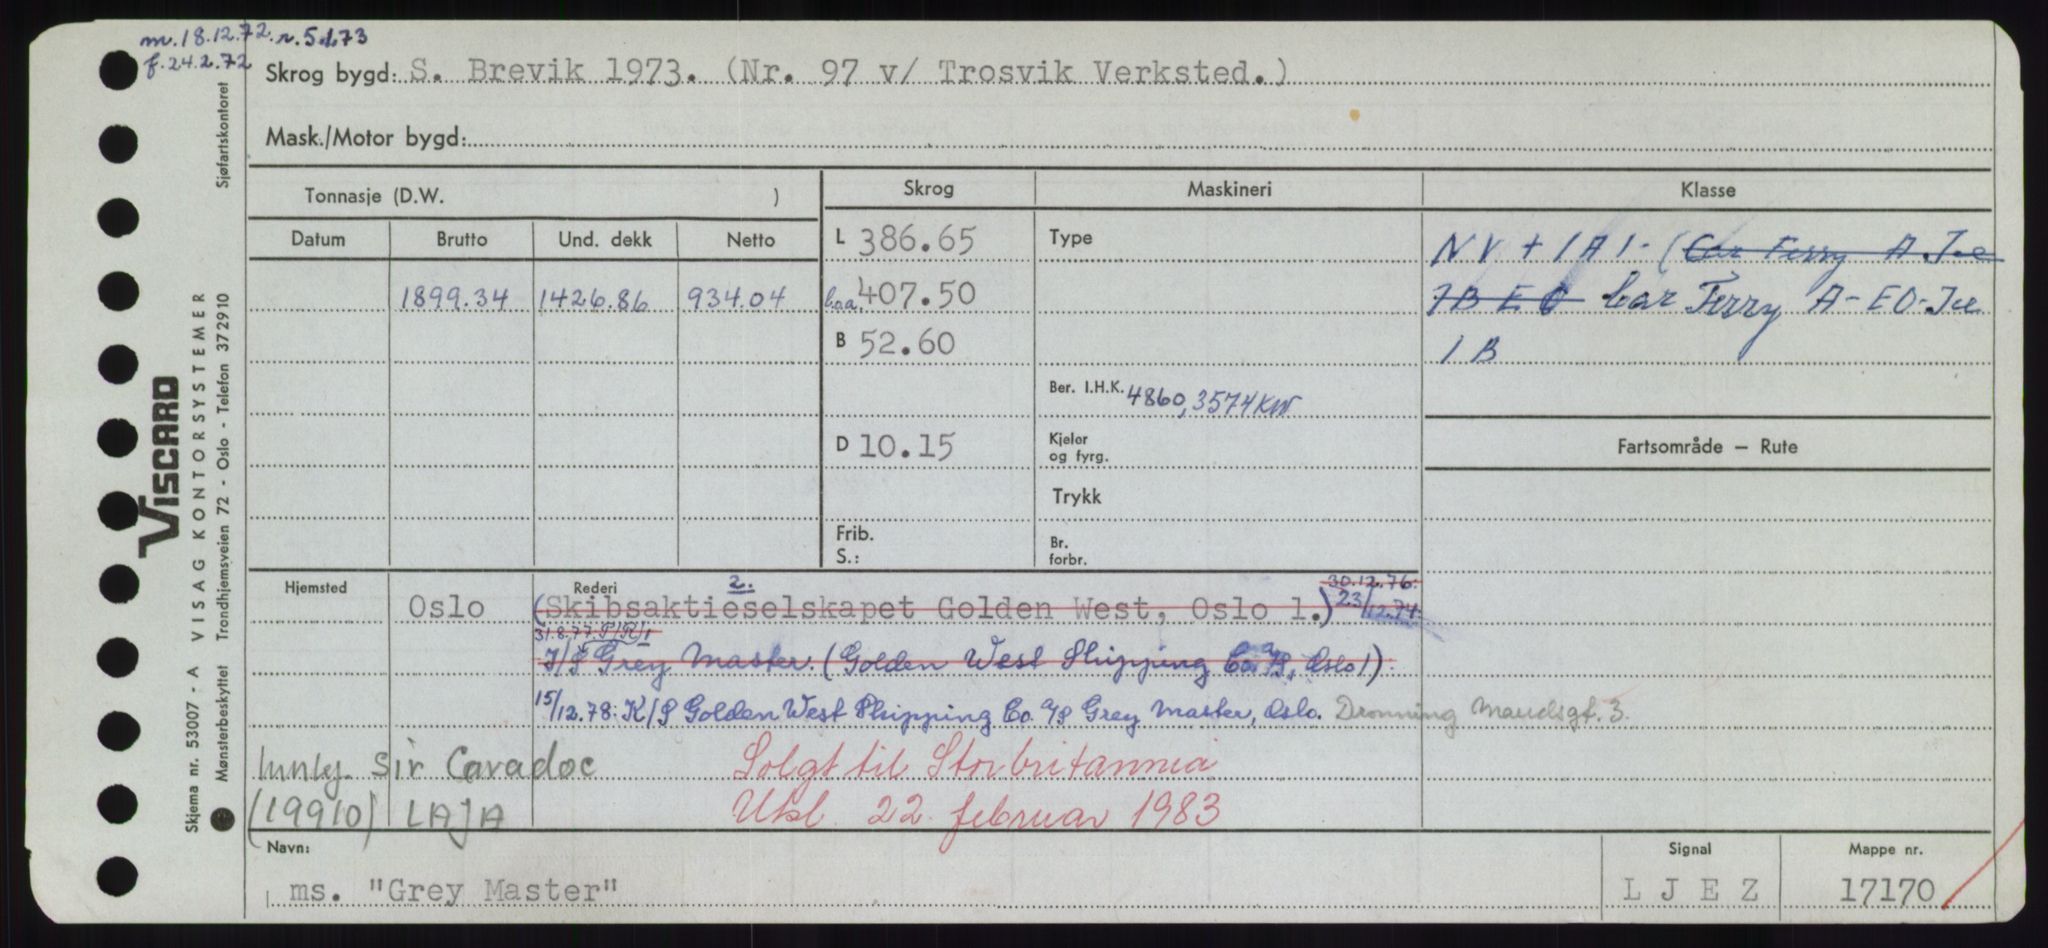 m.18.12.72. r.5.1.73
f.24.2.72
Skrog bygd: S. Brevik 1973. (Nr. 97 v/ Trosvik Verksted.)
Mask./Motor bygd:
Tonnasje (D.W. )
Skrog
Maskineri
Klasse
Datum Brutto Und. dekk Netto
L 386.65
Type
NV + 1A1- (Car Ferry A. Ice
1899.34 1426.86 934.04
l.o.a. 407.50
1B EO Car Ferry A- EO- Ice
B 52.60
1 B
Ber. I.H.K. 4860, 3574 KW
D 10.15
Kjeler
og fyrg.
Fartsområde — Rute
Trykk
Frib.
S.:
Br.
forbr.
Hjemsted
Rederi 2. 30.12.76.
Oslo (Skibsaktieselskapet Golden West, Oslo 1.) 23/12.74.
31.8.77. P/R/1
I/S Grey Master. (Golden West Shipping Co. A/S, Oslo 1).
15/12.78: K/S Golden West Shipping Co. A/S Grey Master, Oslo. Dronning Maudsgt. 3.
Innly. Sir Caradoc Solgt til Storbritannia
(19910) LAJA Utsl. 22. februar 1983
Navn: Signal Mappe nr.
ms. "Grey Master" L J E Z 17170
Skjema nr. 53007 - A VISAG KONTORSYSTEMER Sjøfartskontoret
Mønsterbeskyttet Trondhjemsveien 72 - Oslo - Telefon 372910
VISCARD